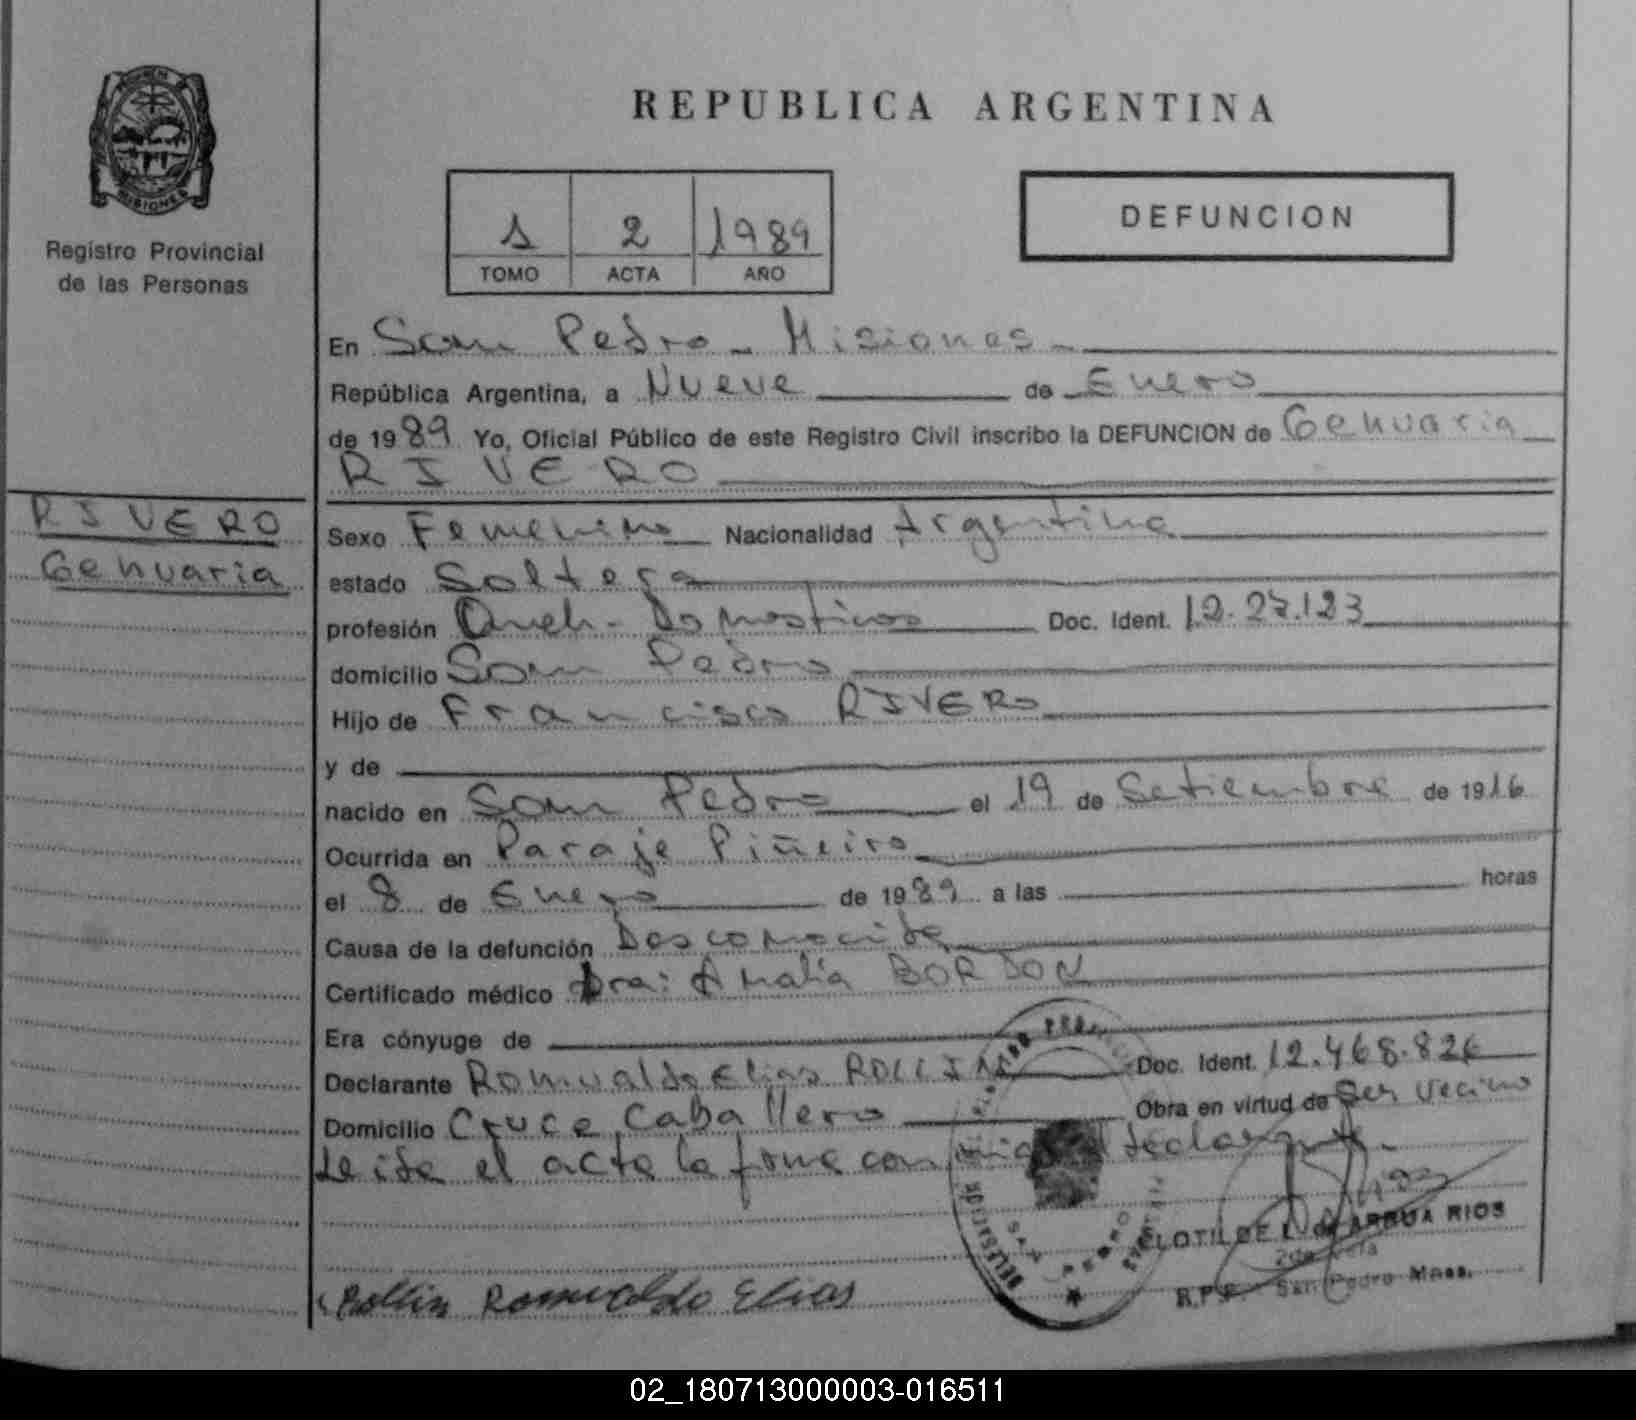 REPUBLICA ARGENTINA
MISIONES
Registro Provincial
de las Personas
1 2 1989
TOMO ACTA AÑO
DEFUNCION
En San Pedro - Misiones -
República Argentina, a Nueve de Enero
de 1989 Yo, Oficial Público de este Registro Civil inscribo la DEFUNCION de Genuaria
RIVERO
RIVERO
Genuaria
Sexo Femenino Nacionalidad Argentina
estado Soltera
profesión Queh. Domesticos Doc. Ident. 12.27.123
domicilio San Pedro
Hijo de Francisco RIVERO
y de
nacido en San Pedro el 19 de Setiembre de 1916
Ocurrida en Paraje Piñeiro
el 8 de Enero de 1989 a las horas
Causa de la defunción Desconocida
Certificado médico Dra: Amalia BORDON
Era cónyuge de
Declarante Romualdo Elias ROLLIN Doc. Ident. 12.468.826
Domicilio Cruce Caballero Obra en virtud de Ser vecino
Leida el acta la firma conmigo el declarante.
CLOTILDE L. RIOS
2da Jefa
R.P.P. San Pedro Mnes.
Rollin Romualdo Elias
02_180713000003-016511